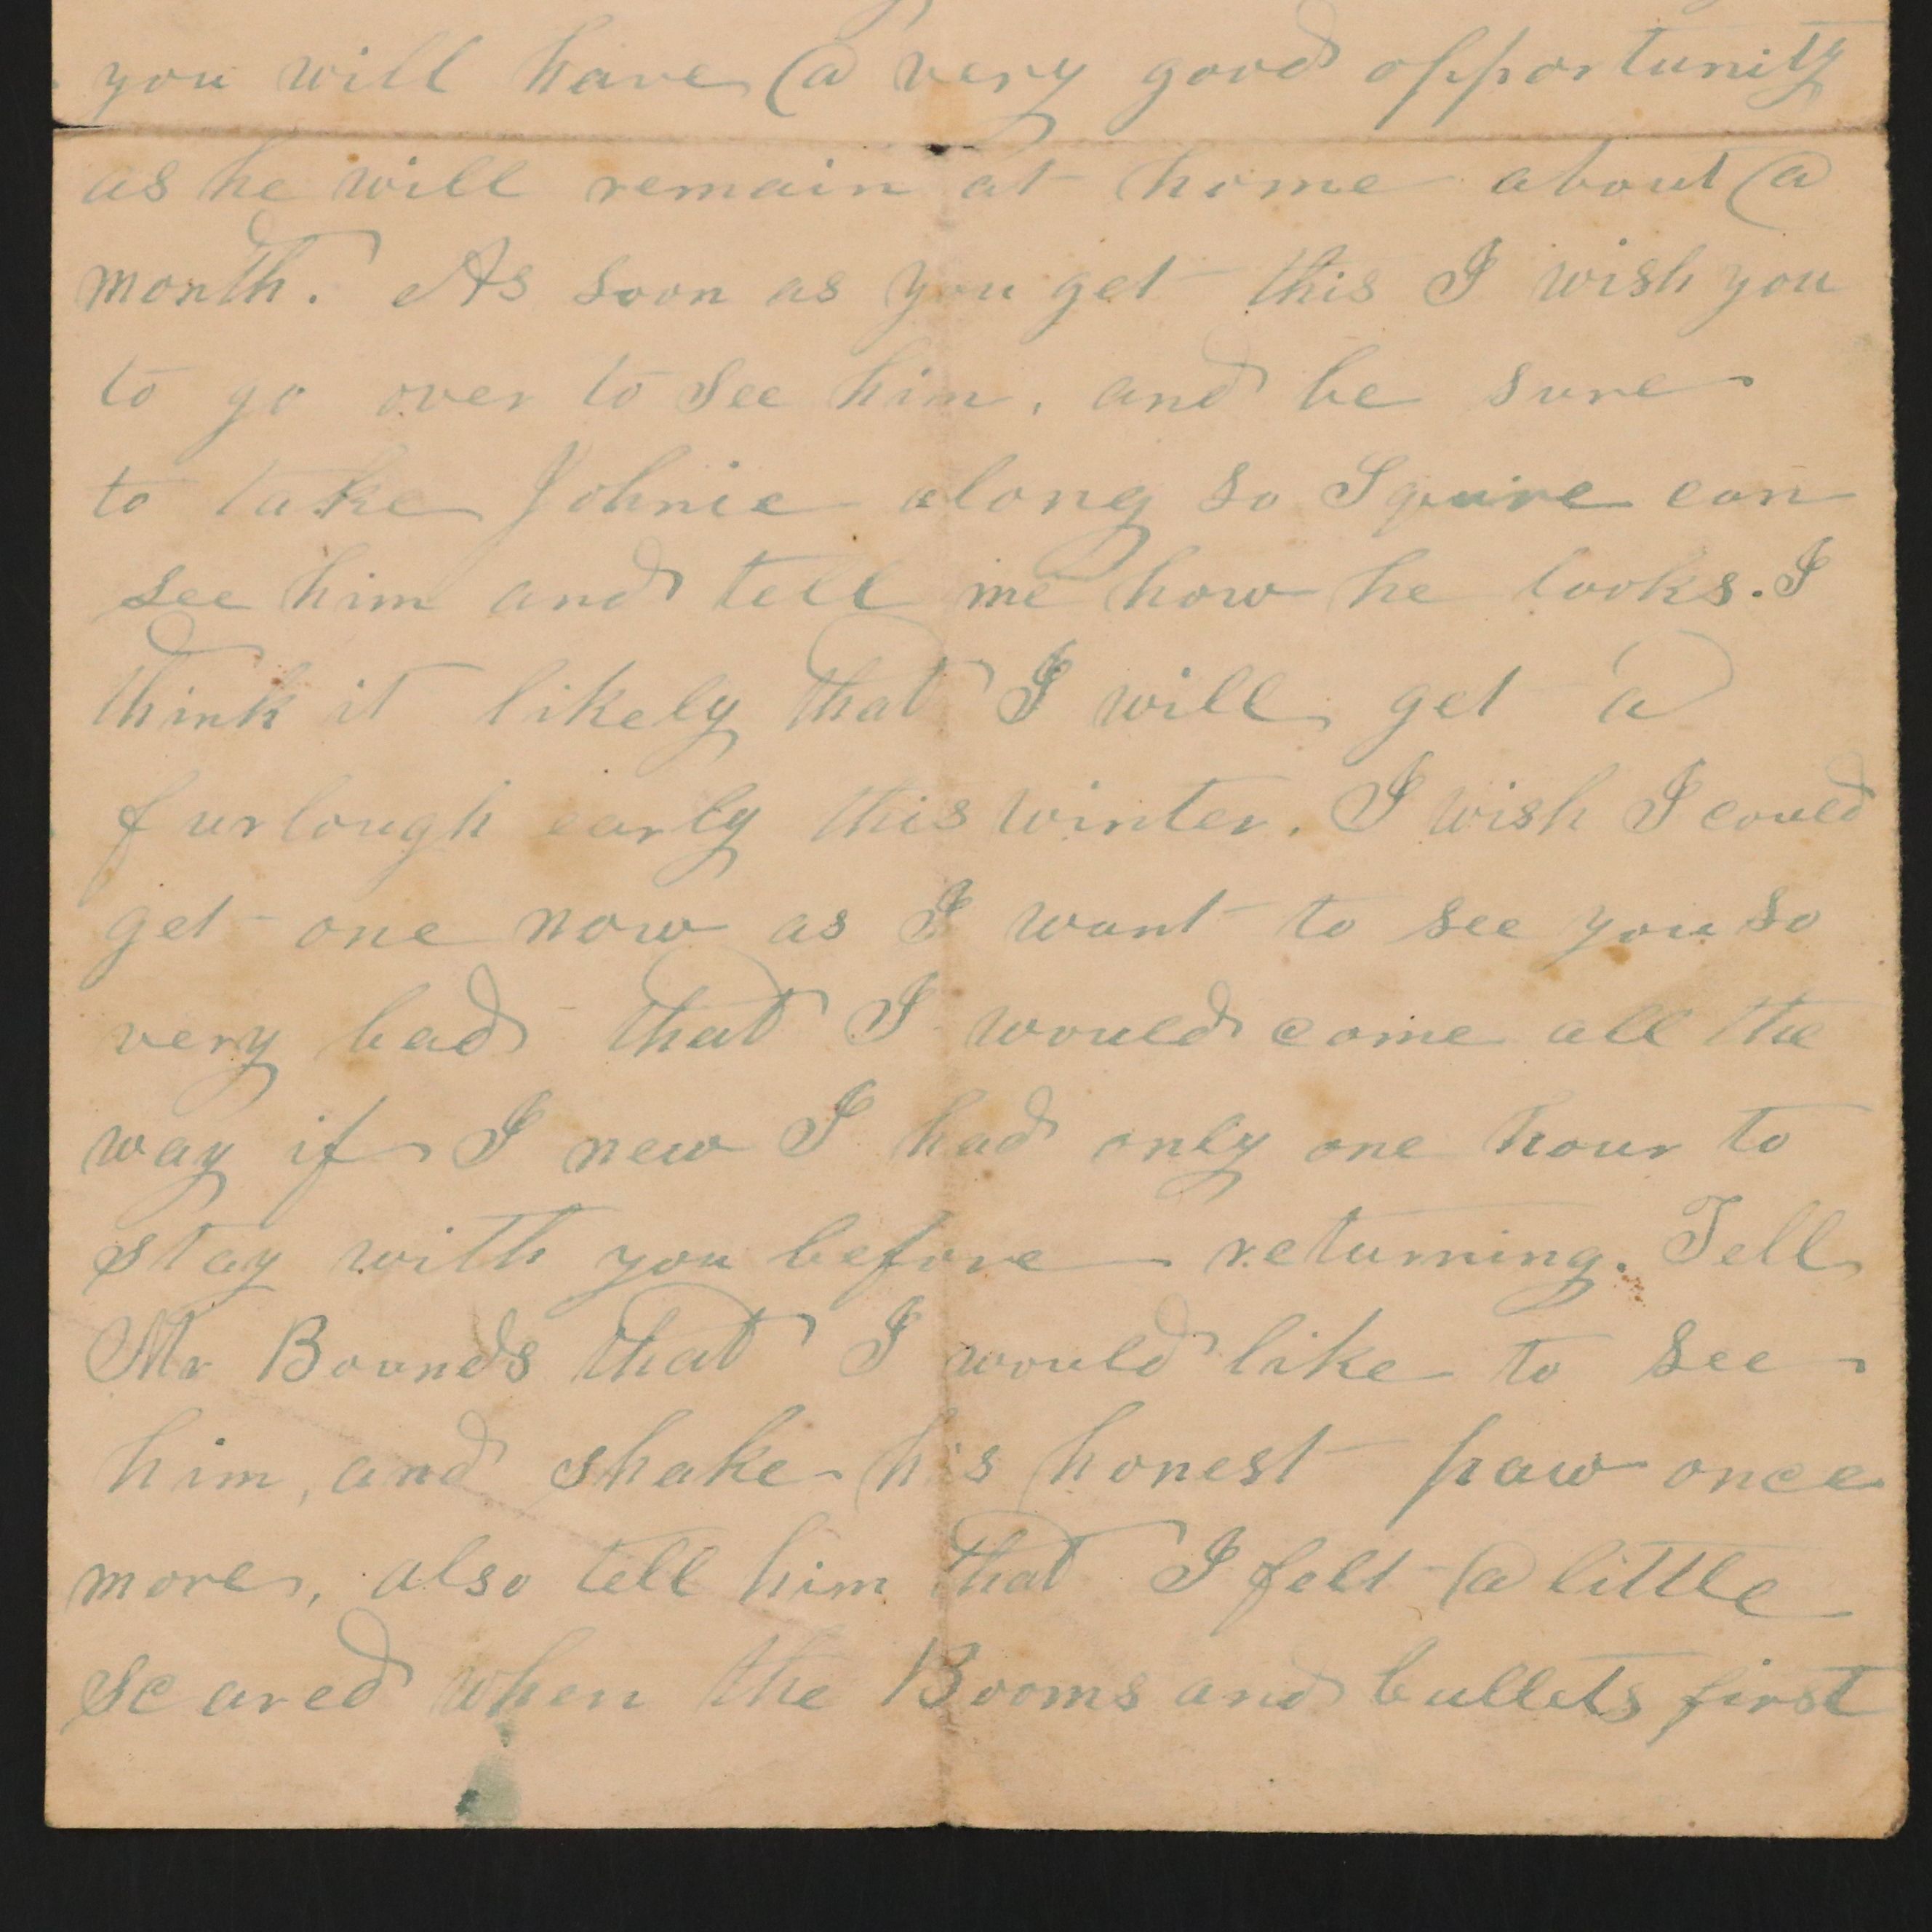 you will have a very good opportunity
as he will remain at home about a
month. As soon as you get this I wish you
to go over to see him, and be sure
to take Johnie along so Squire can
see him and tell me how he looks. I
think it likely that I will get a
furlough early this winter. I wish I could
get one now as I want to see you so
very bad that I would come all the
way if I new I had only one hour to
stay with you before returning. Tell
Mr Bounds that I would like to see
him, and shake his honest paw once
more, also tell him that I felt a little
scared when the Booms and bullets first